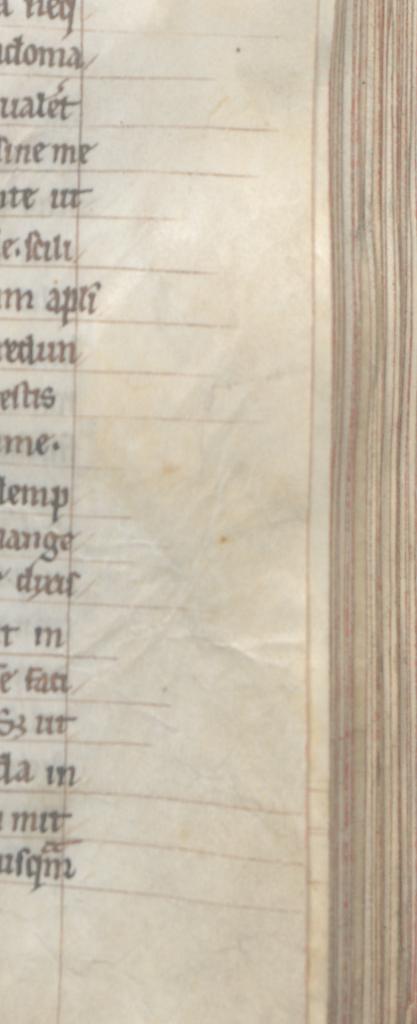 a neq
doma
ualet
sine me
nte ut
e. scili
m apli
redun
estis
me.
temp
ange
duas
t in
e faci
Sʒ ut
da in
mit
usqm